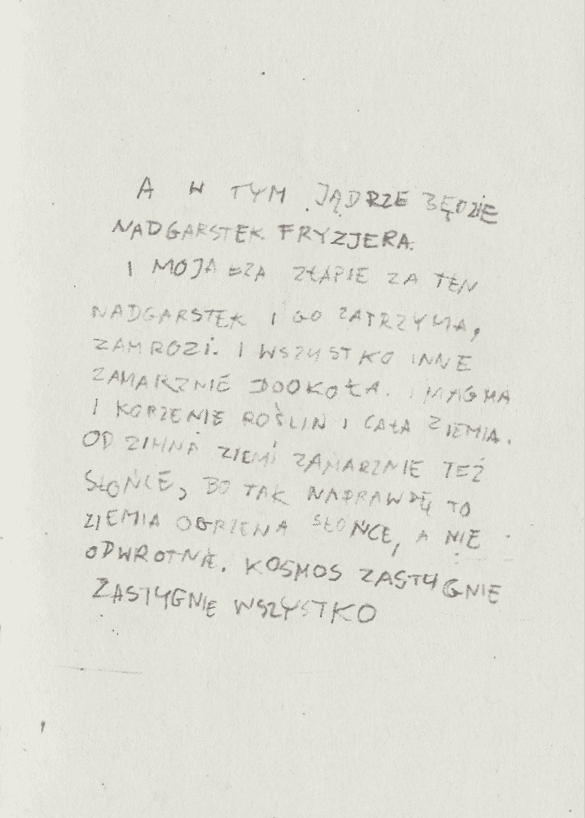 A W TYM JĄDRZE BĘDZIE
NADGARSTEK FRYZJERA.
I MOJA ŁZA ZŁAPIE ZA TEN
NADGARSTEK I GO ZATRZYMA,
ZAMROZI. I WSZYSTKO INNE
ZAMARZNIE DOOKOŁA. I MAGMA
I KORZENIE ROŚLIN I CAŁA ZIEMIA.
OD ZIMNA ZIEMI ZAMARZNIE TEŻ
SŁOŃCE, BO TAK NAPRAWDĘ TO
ZIEMIA OGRZEWA SŁOŃCE, A NIE
ODWROTNIE. KOSMOS ZASTYGNIE
ZASTYGNIE WSZYSTKO